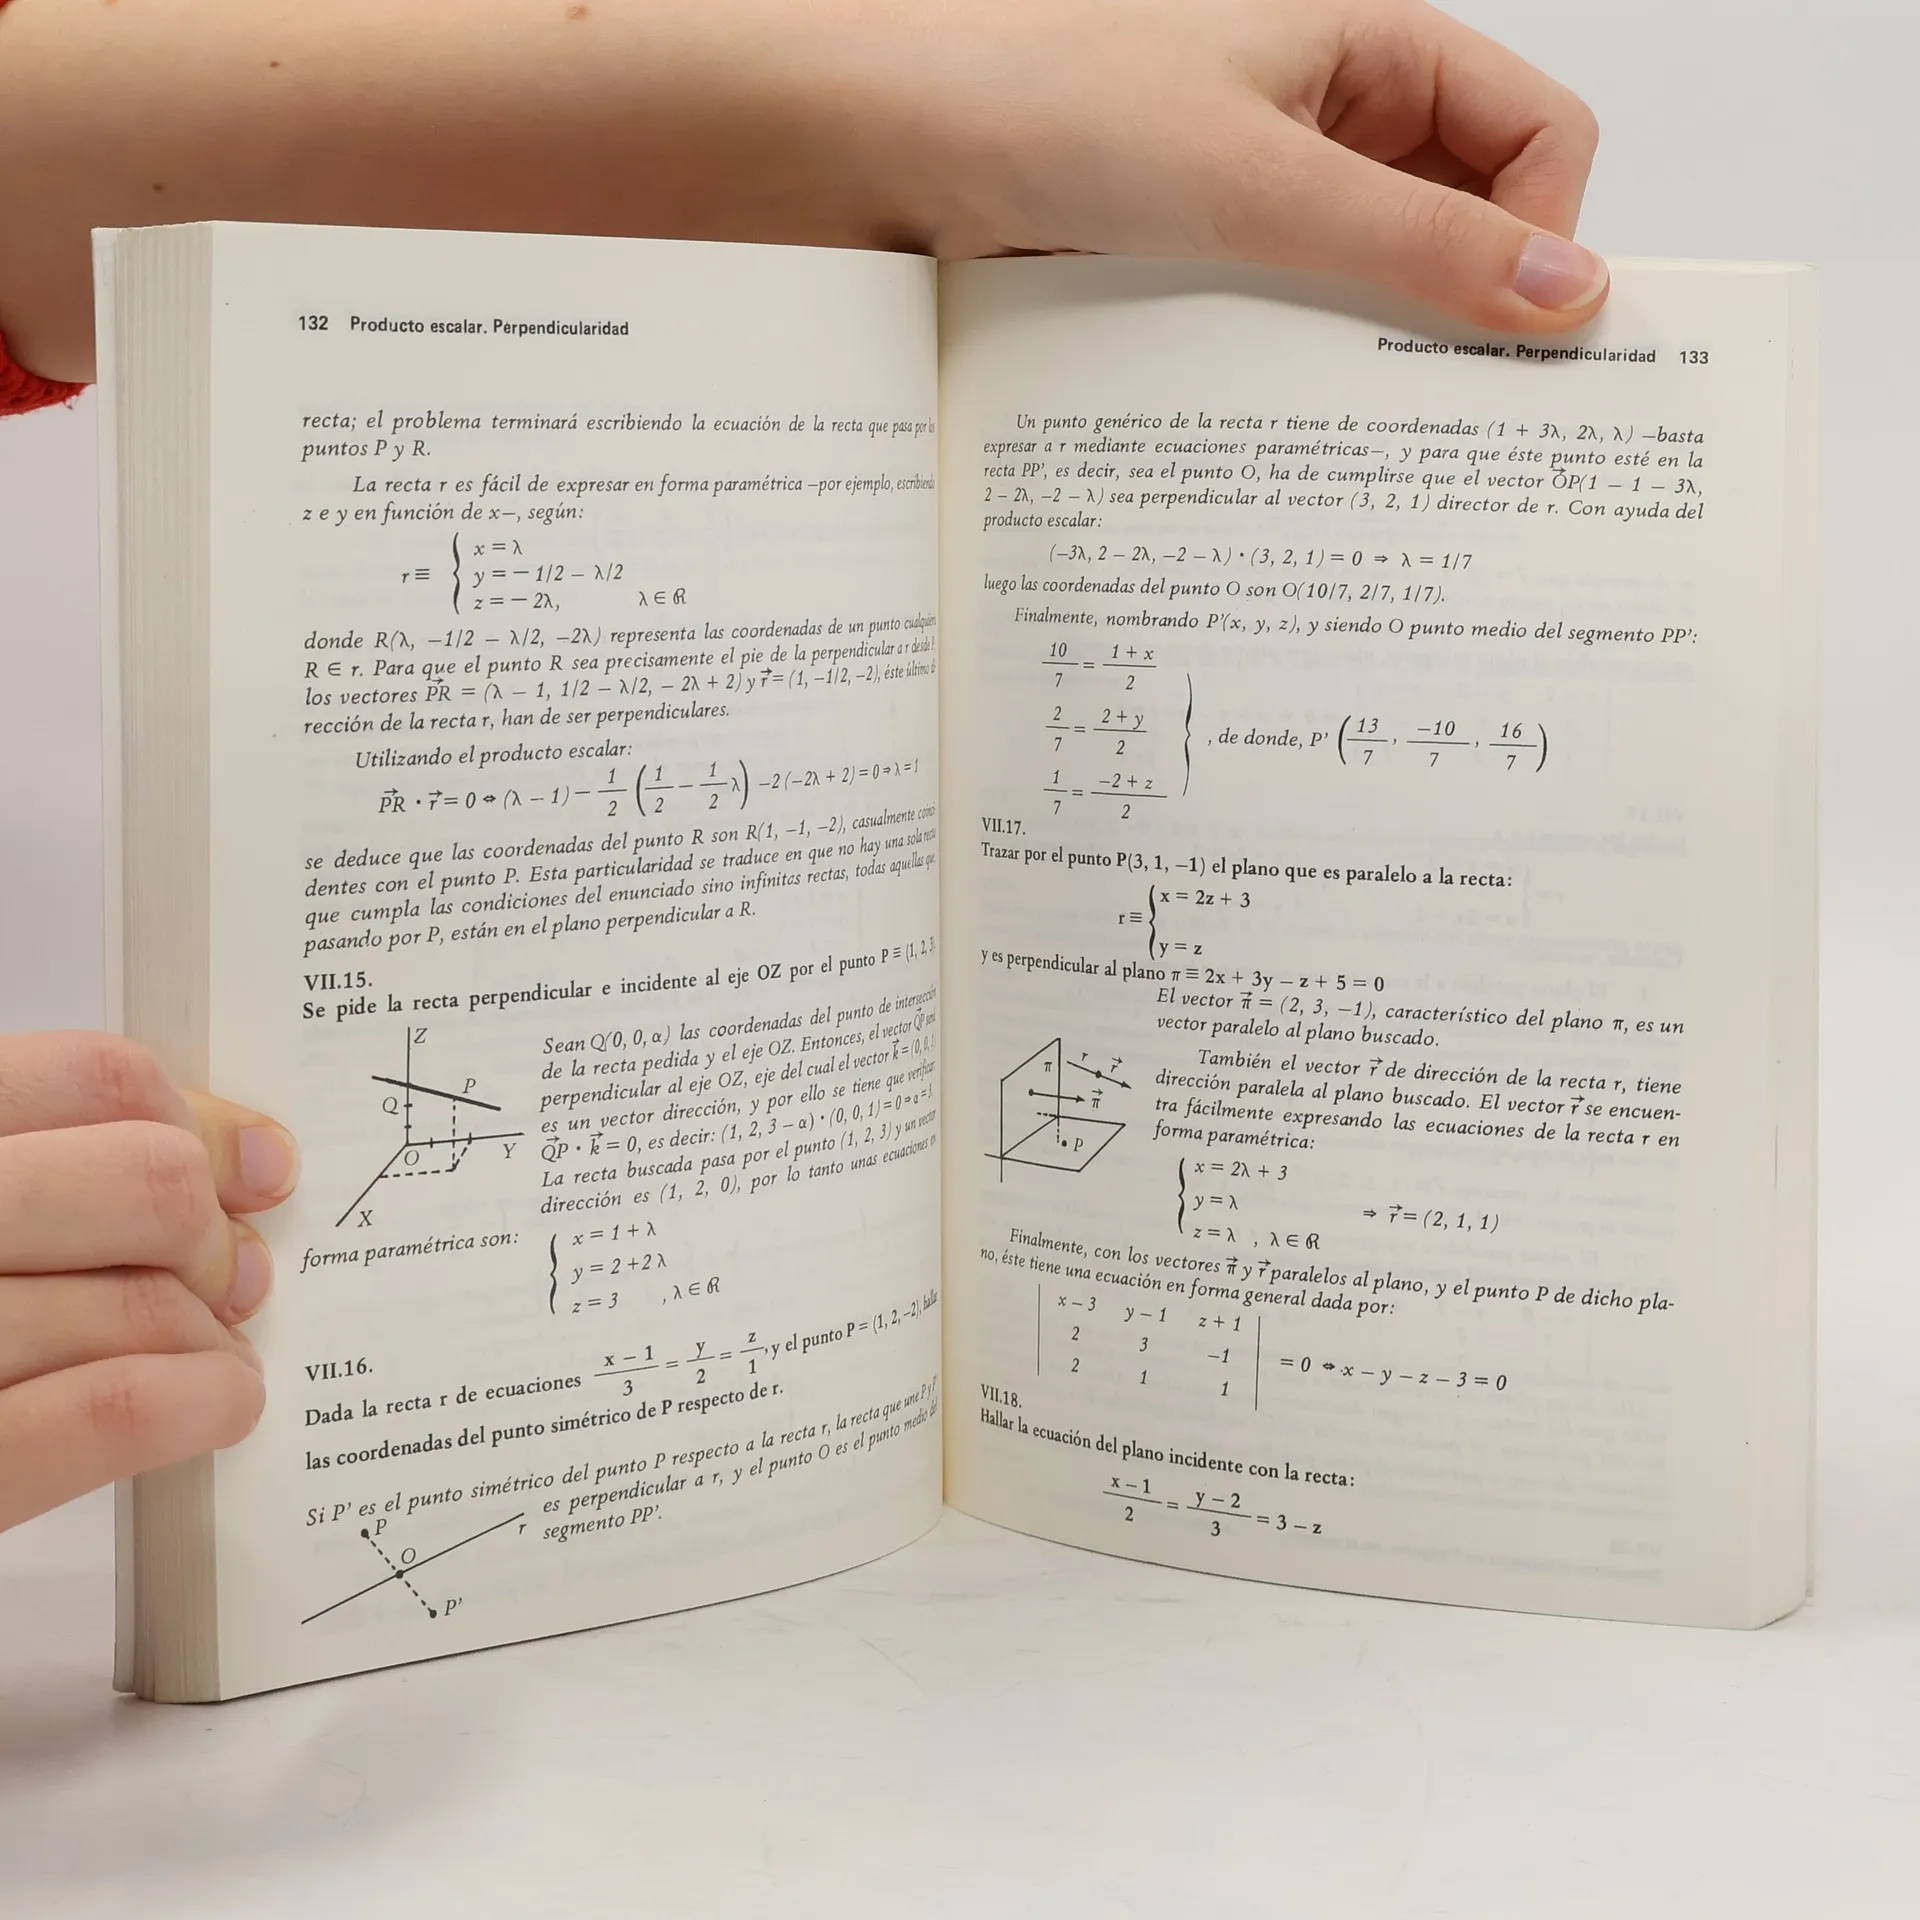 132 Producto escalar. Perpendicularidad
recta; el problema terminará escribiendo la ecuación de la recta que pasa por los
puntos P y R.
La recta r es fácil de expresar en forma paramétrica —por ejemplo, escribiendo
z e y en función de x—, según:
x = λ
r ≡ { y = − 1/2 − λ/2
z = − 2λ, λ ∈ ℝ
donde R(λ, −1/2 − λ/2, −2λ) representa las coordenadas de un punto cualquiera
R ∈ r. Para que el punto R sea precisamente el pie de la perpendicular a r desde P,
los vectores P⃗R = (λ − 1, 1/2 − λ/2, − 2λ + 2) y r⃗ = (1, −1/2, −2), éste último
rección de la recta r, han de ser perpendiculares.
Utilizando el producto escalar:
P⃗R · r⃗ = 0 ⇔ (λ − 1) − 1/2 (1/2 − 1/2 λ) −2 (−2λ + 2) = 0 ⇒ λ = 1
se deduce que las coordenadas del punto R son R(1, −1, −2), casualmente coinci-
dentes con el punto P. Esta particularidad se traduce en que no hay una sola recta
que cumpla las condiciones del enunciado sino infinitas rectas, todas aquellas que,
pasando por P, están en el plano perpendicular a R.
VII.15.
Se pide la recta perpendicular e incidente al eje OZ por el punto P ≡ (1, 2, 3).
Z
P
Q
O
Y
X
Sean Q(0, 0, α) las coordenadas del punto de intersección
de la recta pedida y el eje OZ. Entonces, el vector Q⃗P será
perpendicular al eje OZ, eje del cual el vector k⃗ = (0, 0, 1)
es un vector dirección, y por ello se tiene que verificar:
Q⃗P · k⃗ = 0, es decir: (1, 2, 3 − α) · (0, 0, 1) = 0 ⇒ α = 3.
La recta buscada pasa por el punto (1, 2, 3) y un vector
dirección es (1, 2, 0), por lo tanto unas ecuaciones en
forma paramétrica son:
x = 1 + λ
y = 2 + 2 λ
z = 3 , λ ∈ ℝ
VII.16.
Dada la recta r de ecuaciones x − 1/3 = y/2 = z/1, y el punto P = (1, 2, −2), hallar
las coordenadas del punto simétrico de P respecto de r.
Si P' es el punto simétrico del punto P respecto a la recta r, la recta que une P y P'
es perpendicular a r, y el punto O es el punto medio del
segmento PP'.
P
O
r
P'
Producto escalar. Perpendicularidad 133
Un punto genérico de la recta r tiene de coordenadas (1 + 3λ, 2λ, λ) —basta
expresar a r mediante ecuaciones paramétricas—, y para que éste punto esté en la
recta PP', es decir, sea el punto O, ha de cumplirse que el vector O⃗P(1 − 1 − 3λ,
2 − 2λ, −2 − λ) sea perpendicular al vector (3, 2, 1) director de r. Con ayuda del
producto escalar:
(−3λ, 2 − 2λ, −2 − λ) · (3, 2, 1) = 0 ⇒ λ = 1/7
luego las coordenadas del punto O son O(10/7, 2/7, 1/7).
Finalmente, nombrando P'(x, y, z), y siendo O punto medio del segmento PP':
10/7 = 1 + x/2
2/7 = 2 + y/2 } , de donde, P' (13/7, −10/7, 16/7)
1/7 = −2 + z/2
VII.17.
Trazar por el punto P(3, 1, −1) el plano que es paralelo a la recta:
x = 2z + 3
r ≡ {
y = z
y es perpendicular al plano π ≡ 2x + 3y − z + 5 = 0
El vector π⃗ = (2, 3, −1), característico del plano π, es un
vector paralelo al plano buscado.
π
r
r⃗
π⃗
P
También el vector r⃗ de dirección de la recta r, tiene
dirección paralela al plano buscado. El vector r⃗ se encuen-
tra fácilmente expresando las ecuaciones de la recta r en
forma paramétrica:
x = 2λ + 3
y = λ ⇒ r⃗ = (2, 1, 1)
z = λ , λ ∈ ℝ
Finalmente, con los vectores π⃗ y r⃗ paralelos al plano, y el punto P de dicho pla-
no, éste tiene una ecuación en forma general dada por:
x − 3 y − 1 z + 1
2 3 −1 = 0 ⇔ x − y − z − 3 = 0
2 1 1
VII.18.
Hallar la ecuación del plano incidente con la recta:
x − 1/2 = y − 2/3 = 3 − z